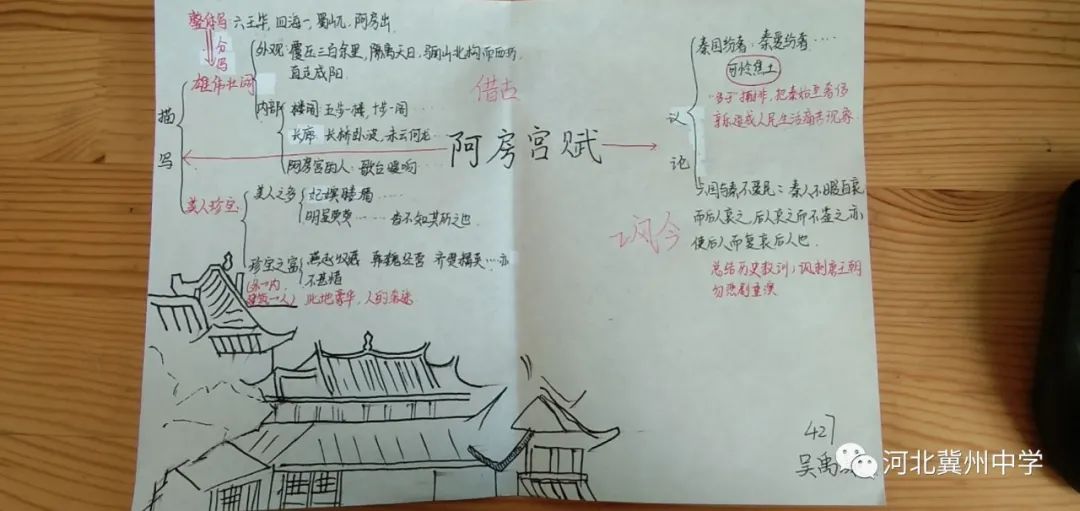 整体写 六王毕,四海一,蜀山兀,阿房出
分写
描写
雄伟壮阔
外观:覆压三百余里,隔离天日.骊山北构而西折
直走咸阳.
内部
楼阁 五步一楼,十步一阁……
长廊 长桥卧波,未云何龙……
阿房宫的人:歌台暖响
美人珍宝
美人之多
妃嫔媵嫱
明星荧荧……杳不知其所之也.
珍宝之富
燕赵收藏 韩魏经营 齐楚精英…亦
不甚惜
此地豪华,人的奢逸
借古
阿房宫赋
讽今
议论
秦国纷奢:秦爱纷奢……
可怜焦土
享乐造成人民生活痛苦现象
六国与秦不爱民:秦人不暇自哀
而后人哀之,后人哀之而不鉴之,亦
使后人而复哀后人也.
总结历史教训,讽刺唐王朝
勿悲剧重演
427
吴禹
河北冀州中学